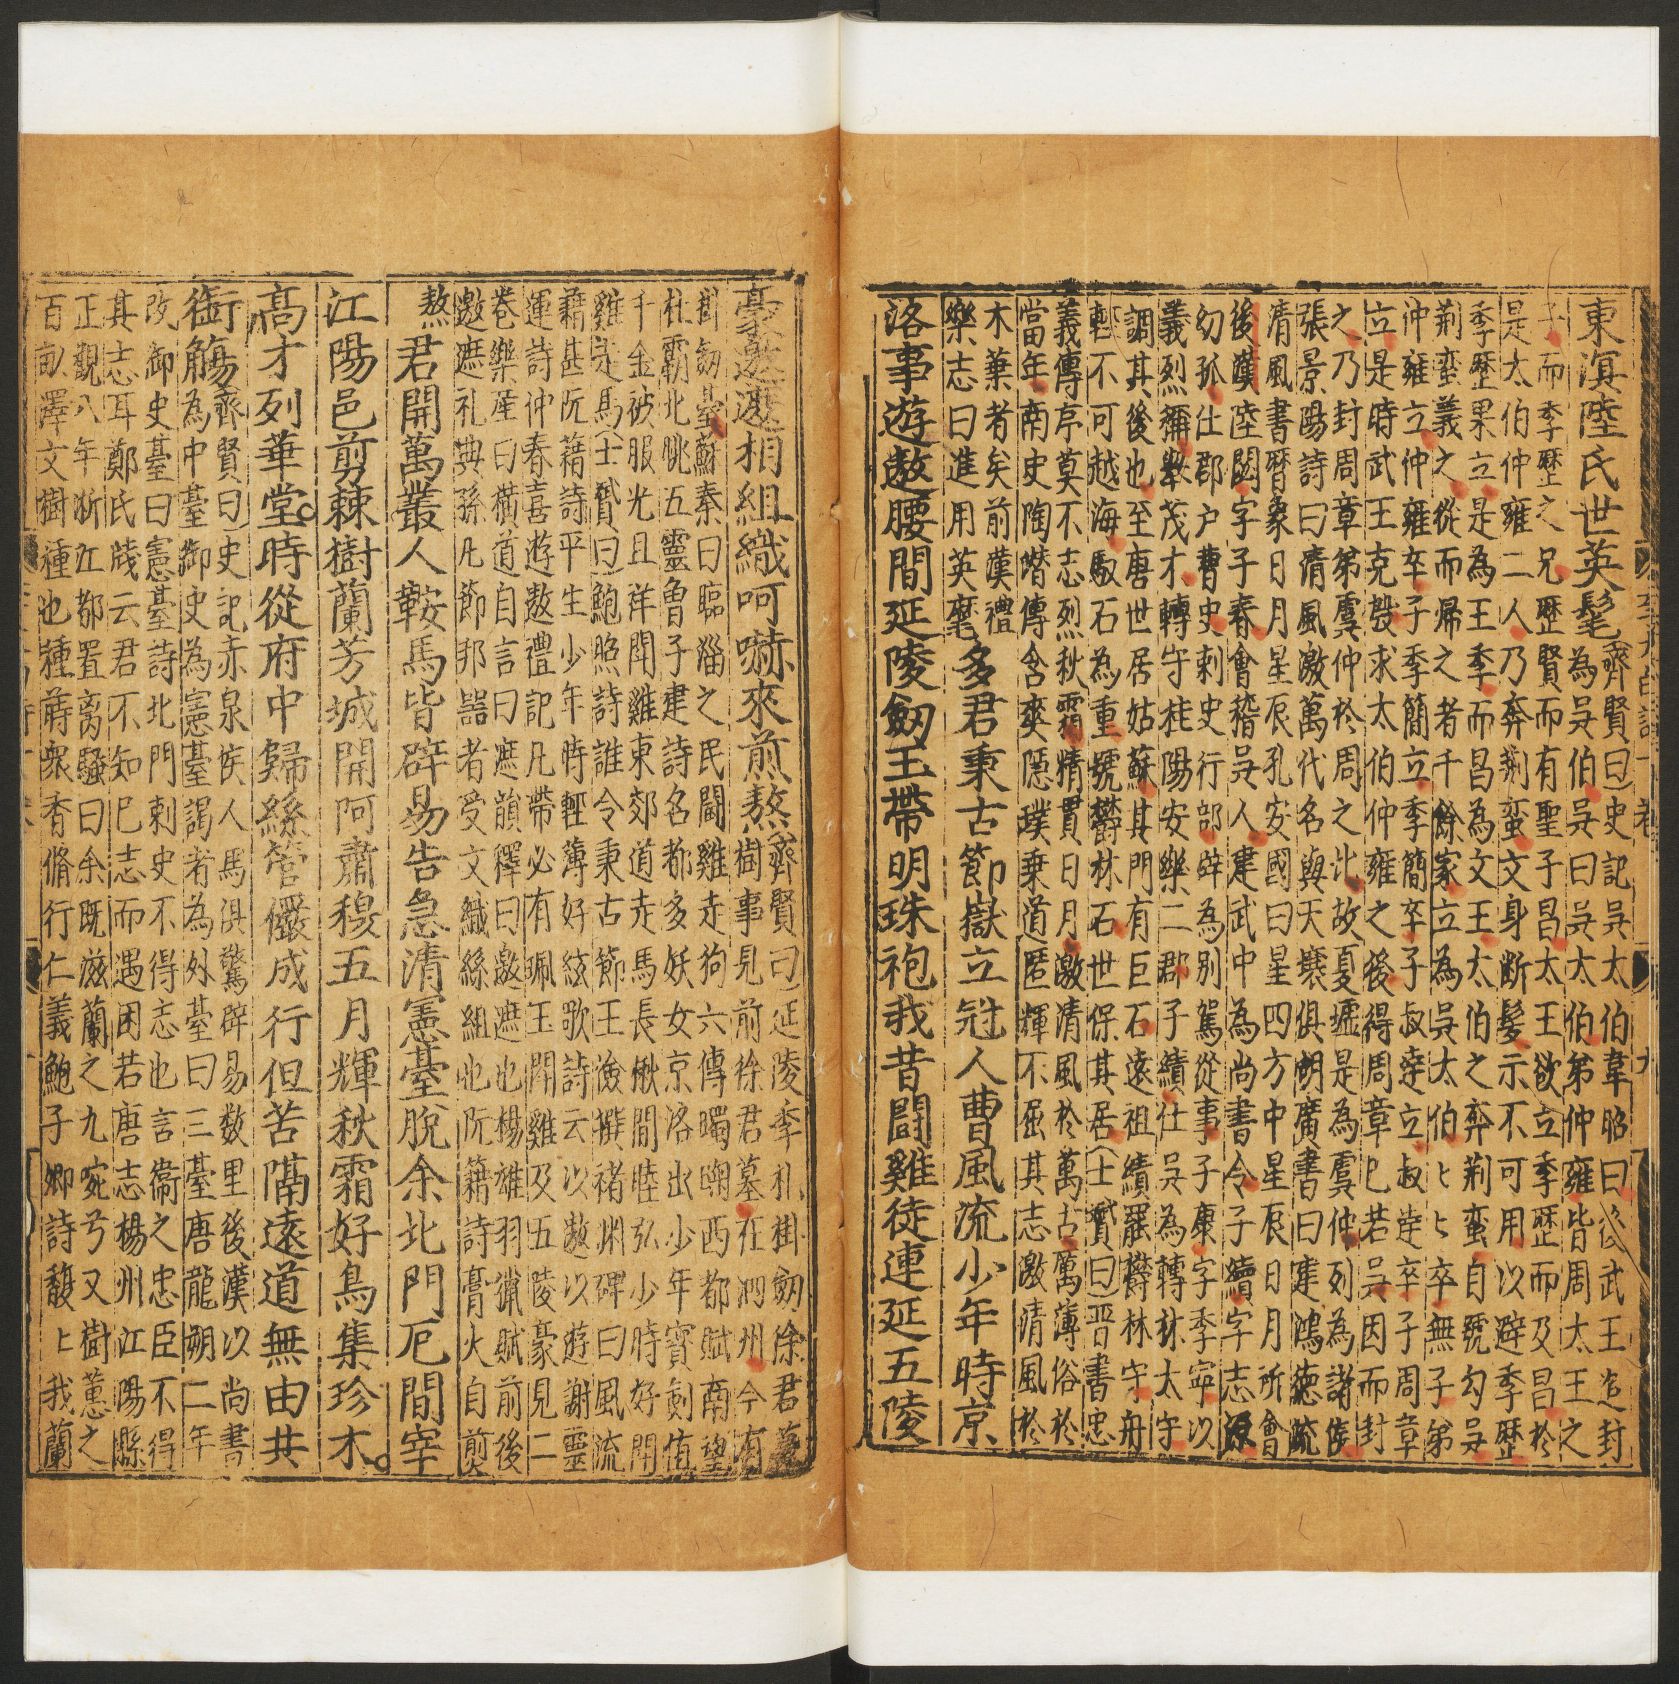 東溟陸氏世英髦
齊賢曰史記吳太伯韋昭曰後武王追封
為吳伯吳曰吳太伯弟仲雍皆周太王之
子而季歷之兄歷賢而有聖子昌太王欲立季歷而及昌於
是太伯仲雍二人乃奔荊蠻文身斷髮示不可用以避季歷
季歷果立是為王季而昌為文王太伯之奔荊蠻自號勾吳
荊蠻義之從而歸之者千餘家立為吳太伯〻〻卒無子弟
仲雍立仲雍卒子季簡立季簡卒子叔達立叔達卒子周章
立是時武王克殷求太伯仲雍之後得周章已若吳因而封
之乃封周章弟虞仲於周之北故夏墟是為虞仲列為諸侯
張景陽詩曰清風激萬代名與天壤俱胡廣書曰建鴻德疏
清風書曆象日月星辰孔安國曰星四方中星辰日月所會
後漢陸閎字子春會稽吳人建武中為尚書令子續字志源
幼孤仕郡户曹史刺史行部辟為別駕從事子康字季寧以
義烈稱舉茂才轉守桂陽安樂二郡子績仕吳為轉林太守
調其後也至唐世居姑蘇其門有巨石遠祖績罷欝林守舟
輕不可越海馭石為重號欝林石世保其居士贇曰晉書忠
義傳序莫不志烈秋霜精貫日月激清風於萬古厲薄俗於
當年南史陶潛傳含奕隱璞乗道匿輝不屈其志激清風於
木葉者矣前漢禮
樂志曰進用英髦
多君秉古節嶽立冠人曹風流少年時京
洛事遊遨腰間延陵劒玉帶明珠袍我昔鬪雞徒連延五陵
豪邀遮相組織呵嚇來煎熬
齊賢曰延陵季札掛劒徐君墓
樹事見前徐君墓在泗州今有
掛劒臺蘇秦曰臨淄之民鬪雞走狗六傳蠋西都賦南望
杜霸北眺五靈魯子建詩名都多妖女京洛出少年寳劍值
千金被服光且洋鬪雞東郊道走馬長楸間眭弘少時好鬪
雞走馬士贇曰鮑照詩誰令秉古節王儉撰褚淵碑曰風流
藉甚阮籍詩平生少年時輕薄好絃歌詩云以遨以遊謝靈
運詩仲春喜遊遨禮記凡帶必有珮玉鬪雞及五陵豪見二
巻樂産曰横道自言曰遮韻釋曰邀遮也楊雄羽獵賦前後
邀遮礼典孫凡節邦器者受文織絲組也阮籍詩膏火自煎
熬
君開萬叢人鞍馬皆辟易告急清憲臺脫余北門厄間宰
江陽邑剪棘樹蘭芳城開阿肅穆五月輝秋霜好鳥集珍木
高才列華堂時從府中歸絲管儼成行但苦隔遠道無由共
銜觴
齊賢曰史記赤泉侯人馬俱驚辟易数里後漢以尚書
為中臺御史為憲臺謁者為外臺曰三臺唐龍朔二年
改御史臺曰憲臺詩北門刺史不得志也言衞之忠臣不得
其志耳鄭氏牋云君不知已志而遇困若唐志楊州江陽縣
正觀八年析江都置离騷曰余既滋蘭之九畹兮又樹蕙之
百畝澤文樹種也種蒔衆香脩行仁義鮑子卿詩馥〻我蘭